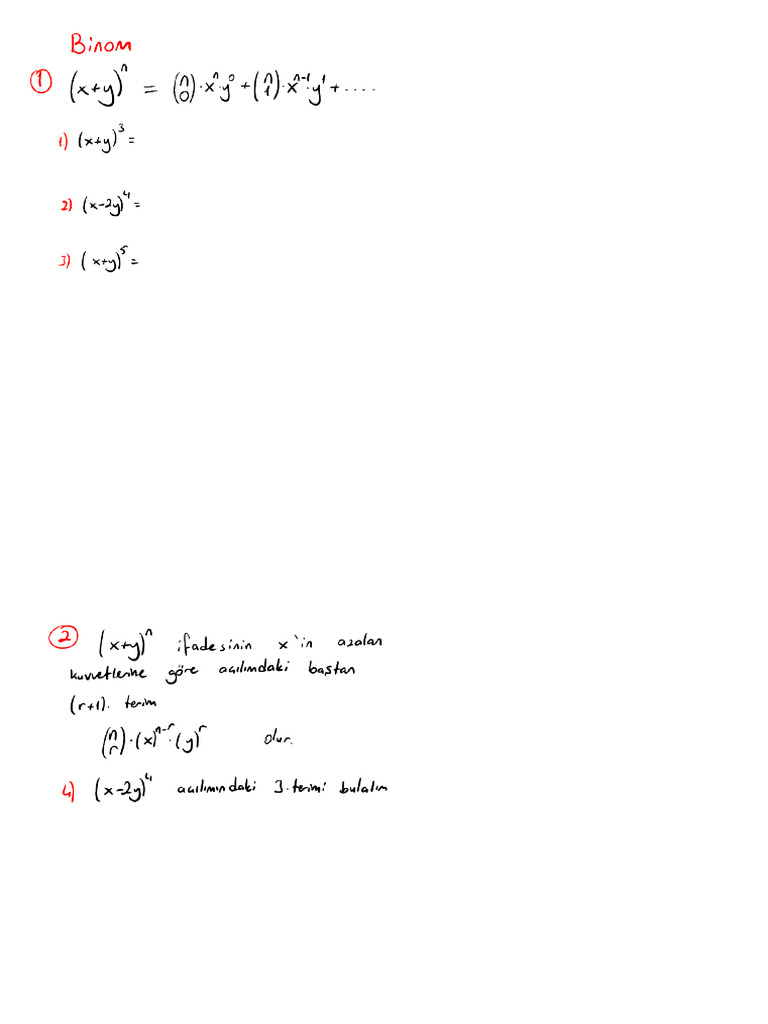 Binom
① (x+y)ⁿ = (n 0)·xⁿ·y⁰ + (n 1)·xⁿ⁻¹·y¹ + ....
1) (x+y)³ =
2) (x-2y)⁴ =
3) (x+y)⁵ =
② (x+y)ⁿ ifadesinin x'in azalan
kuvvetlerine göre açılımdaki baştan
(r+1). terim
(n r)·(x)ⁿ⁻ʳ·(y)ʳ olur.
4) (x-2y)⁴ açılımındaki 3.terimi bulalım